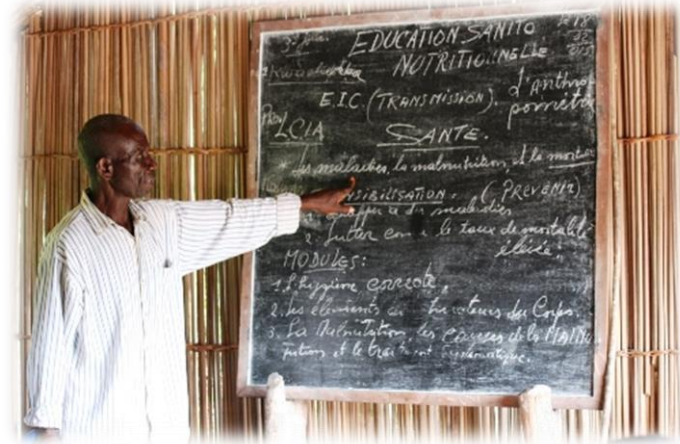 3e
EDUCATION SANITO
NUTRITIONNELLE
E.I.C. (TRANSMISSION). d'Anthro
pométri
LCIA SANTE.
* Les maladies, la malnutrition, et la
SIBILISATION. (PREVENIR)
maladies
2. Lutter con le taux de mortalité
élevée.
MODULES:
1. L'hygiène correcte,
2. Les éléments du Corps.
3. La Malnutrition, les causes de la MALNU
tritions et le systématique.